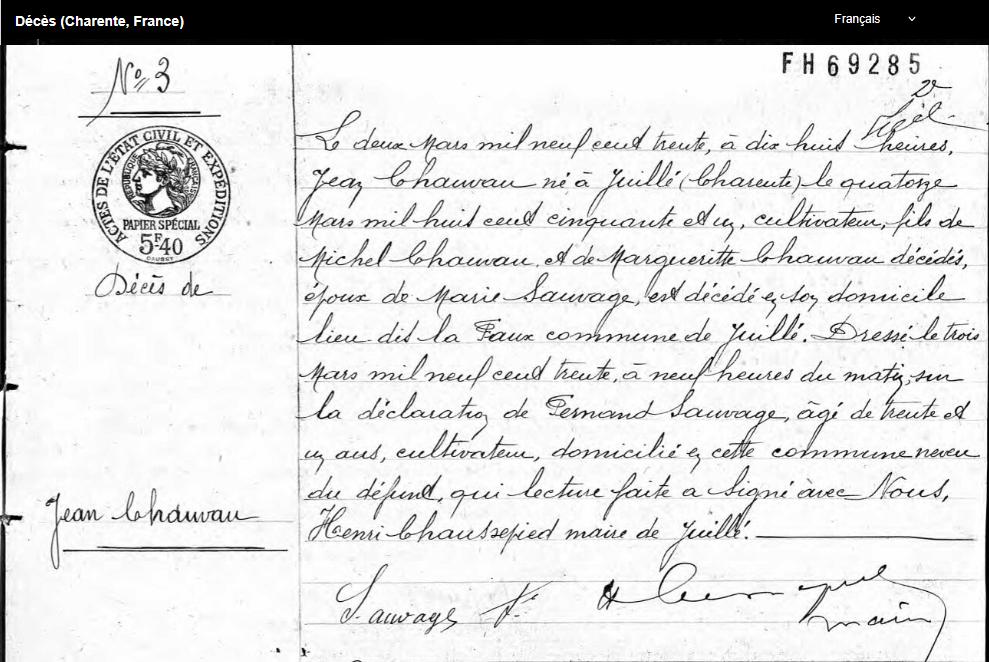 Décès (Charente, France)
Français
FH69285
N° 3
ACTES DE L'ÉTAT CIVIL ET EXPÉDITIONS
RÉPUBLIQUE FRANÇAISE
PAPIER SPÉCIAL
5F40
Décès de
Jean Chauvau
Le deux Mars mil neuf cent trente, à dix huit heures,
Jean Chauvau né à Juillé (Charente) le quatorze
Mars mil huit cent cinquante et un, cultivateur, fils de
Michel Chauvau et de Margueritte Chauvau décédés,
époux de Marie Sauvage, est décédé en son domicile
lieu dit la Faux commune de Juillé. Dressé le trois
Mars mil neuf cent trente, à neuf heures du matin, sur
la déclaration de Fernand Sauvage, âgé de trente et
un ans, cultivateur, domicilié en cette commune neveu
du défunt, qui lecture faite a signé avec Nous,
Henri Chaussepied maire de Juillé.
Sauvage F.
maire